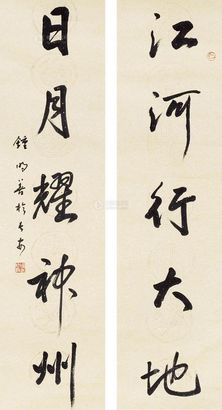 江河行大地
日月耀神州
鍾明善於長安